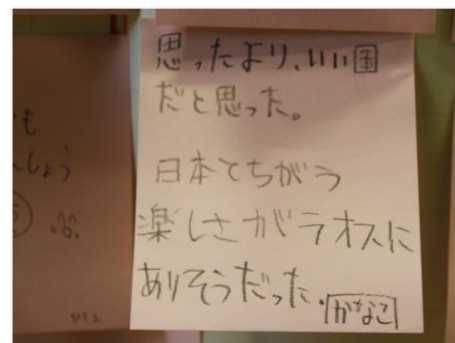 も
しょう
思ったより、いい国
だと思った。
日本とちがう
楽しさがラオスに
ありそうだった.
かなこ